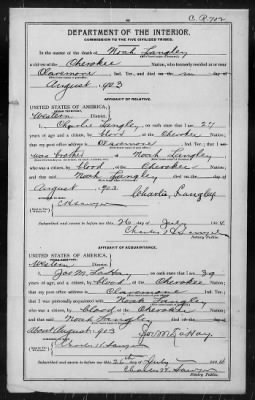 C.R. 702
DEPARTMENT OF THE INTERIOR.
COMMISSION TO THE FIVE CIVILIZED TRIBES.
In the matter of the death of Noah Langley
a citizen of the Cherokee Nation, who formerly resided at or near
Claremore, Ind. Ter., and died on the day of
August, 1903
AFFIDAVIT OF RELATIVE.
UNITED STATES OF AMERICA,
Western District.
I, Charlie Langley, on oath state that I am 27
years of age and a citizen, by blood, of the Cherokee Nation;
that my post office address is Claremore, Ind. Ter.; that I
was brother of Noah Langley
who was a citizen, by blood, of the Cherokee Nation
and that said Noah Langley died on the day of
August, 1903
Charlie Langley
Subscribed and sworn to before me this 26 day of July, 1904
Charles H Sawyer
Notary Public.
AFFIDAVIT OF ACQUAINTANCE.
UNITED STATES OF AMERICA,
Western District.
I, Jos M. LaHay, on oath state that I am 39
years of age, and a citizen, by blood, of the Cherokee Nation;
that my post office address is Claremore, Ind. Ter.;
that I was personally acquainted with Noah Langley
who was a citizen, by blood, of the Cherokee Nation
and that said Noah Langley died on the day of
About August, 1903
Jos. M. LaHay
Charles H. Sawyer
Subscribed and sworn to before me this 26th day of July, 1904
Charles H. Sawyer
Notary Public.